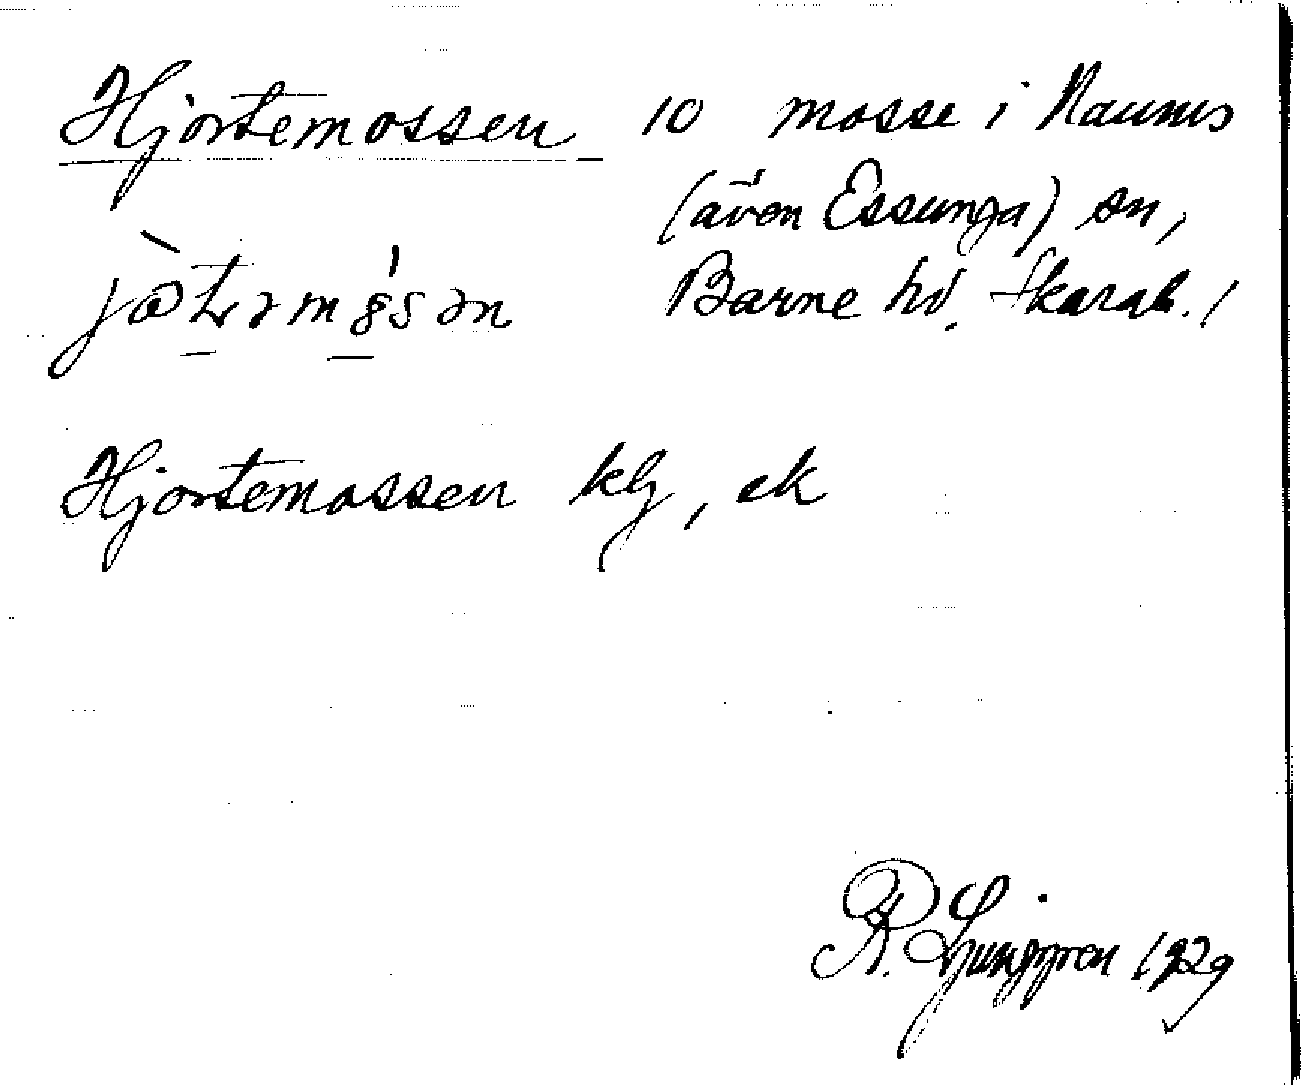 Hjortemossen 10 mosse i Naums
(även Essunga) sn,
Barne hd. Skarab. l
Hjortemossen klg, ek
R. Ljunggren 1929